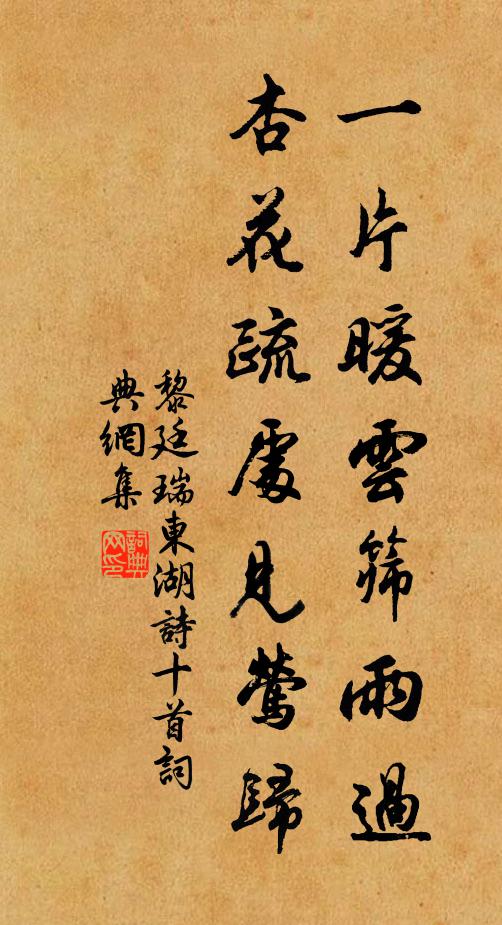 一片暖雲篩雨過
杏花疏處見鶯歸
黎廷瑞東湖詩十首詞
典網集
詞典網印